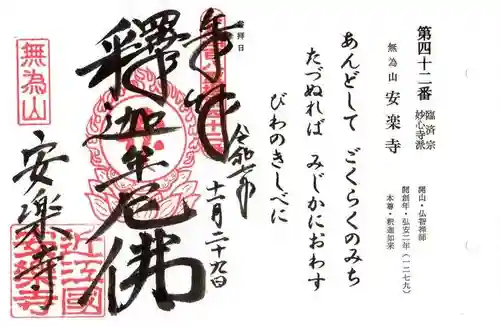 第四十二番 臨済宗
妙心寺派
無為山 安楽寺
開山・仏智禅師
開創年・弘安二年（一二七九）
本尊・釈迦如来
あんどして ごくらくのみち
たづぬれば みじかにおわす
びわのきしべに
拝日
奉拝
十一月二十九日
釋迦牟尼佛
無為山
安楽寺
近江國
安楽寺